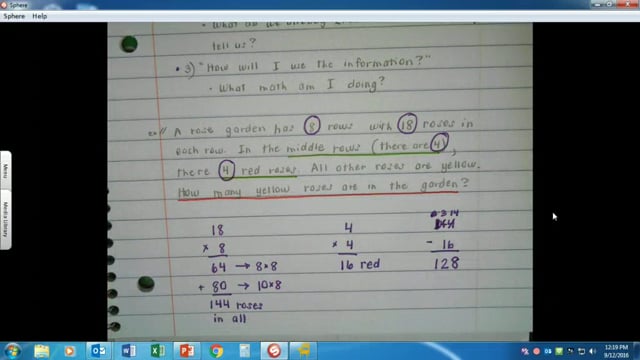 Sphere
Sphere Help
tell us?
• 3) "How will I use the information?"
• What math am I doing?
ex// A rose garden has 8 rows with 18 roses in
each row. In the middle rows (there are 4),
there 4 red roses. All other roses are yellow.
How many yellow roses are in the garden?
18
× 8
64 → 8×8
+ 80 → 10×8
144 roses
in all
4
× 4
16 red
3 14
144
- 16
128
Menu
Media Library
12:19 PM
9/12/2016